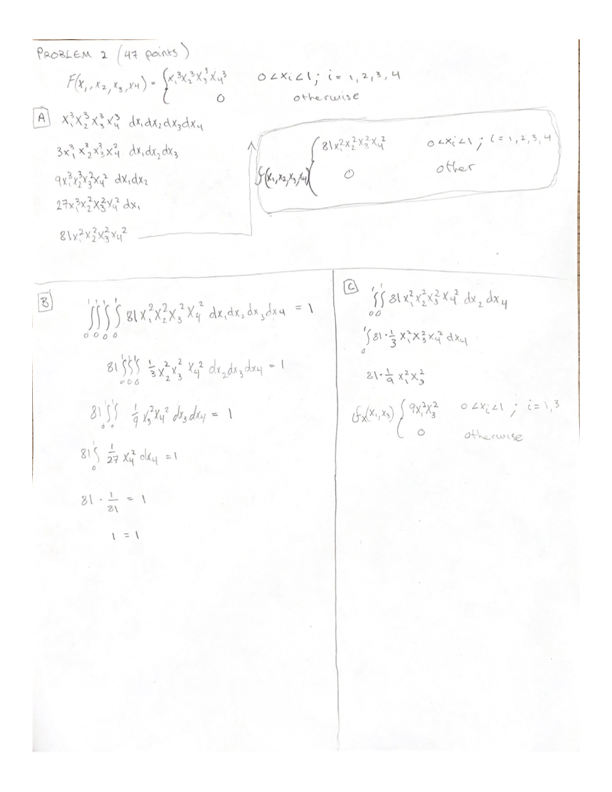 PROBLEM 2 (47 points)
F(x₁,x₂,x₃,x₄) = { x₁³x₂³x₃³x₄³ 0<xᵢ<1; i=1,2,3,4
0 otherwise
A x₁³x₂³x₃³x₄³ dx₁dx₂dx₃dx₄
3x₁³x₂³x₃³x₄² dx₁dx₂dx₃
9x₁³x₂³x₃²x₄² dx₁dx₂
27x₁³x₂²x₃²x₄² dx₁
81x₁²x₂²x₃²x₄²
f(x₁,x₂,x₃,x₄) { 81x₁²x₂²x₃²x₄² 0<xᵢ<1; i=1,2,3,4
0 other
B ∫₀¹∫₀¹∫₀¹∫₀¹ 81x₁²x₂²x₃²x₄² dx₁dx₂dx₃dx₄ = 1
81∫₀¹∫₀¹∫₀¹ 1/3 x₂²x₃²x₄² dx₂dx₃dx₄ = 1
81∫₀¹∫₀¹ 1/9 x₃²x₄² dx₃dx₄ = 1
81∫₀¹ 1/27 x₄² dx₄ = 1
81 · 1/81 = 1
1 = 1
C ∫₀¹∫₀¹ 81x₁²x₂²x₃²x₄² dx₂dx₄
∫₀¹ 81 · 1/3 x₁²x₃²x₄² dx₄
81 · 1/9 x₁²x₃²
fₓ(x₁,x₃) { 9x₁²x₃² 0<xᵢ<1; i=1,3
0 otherwise